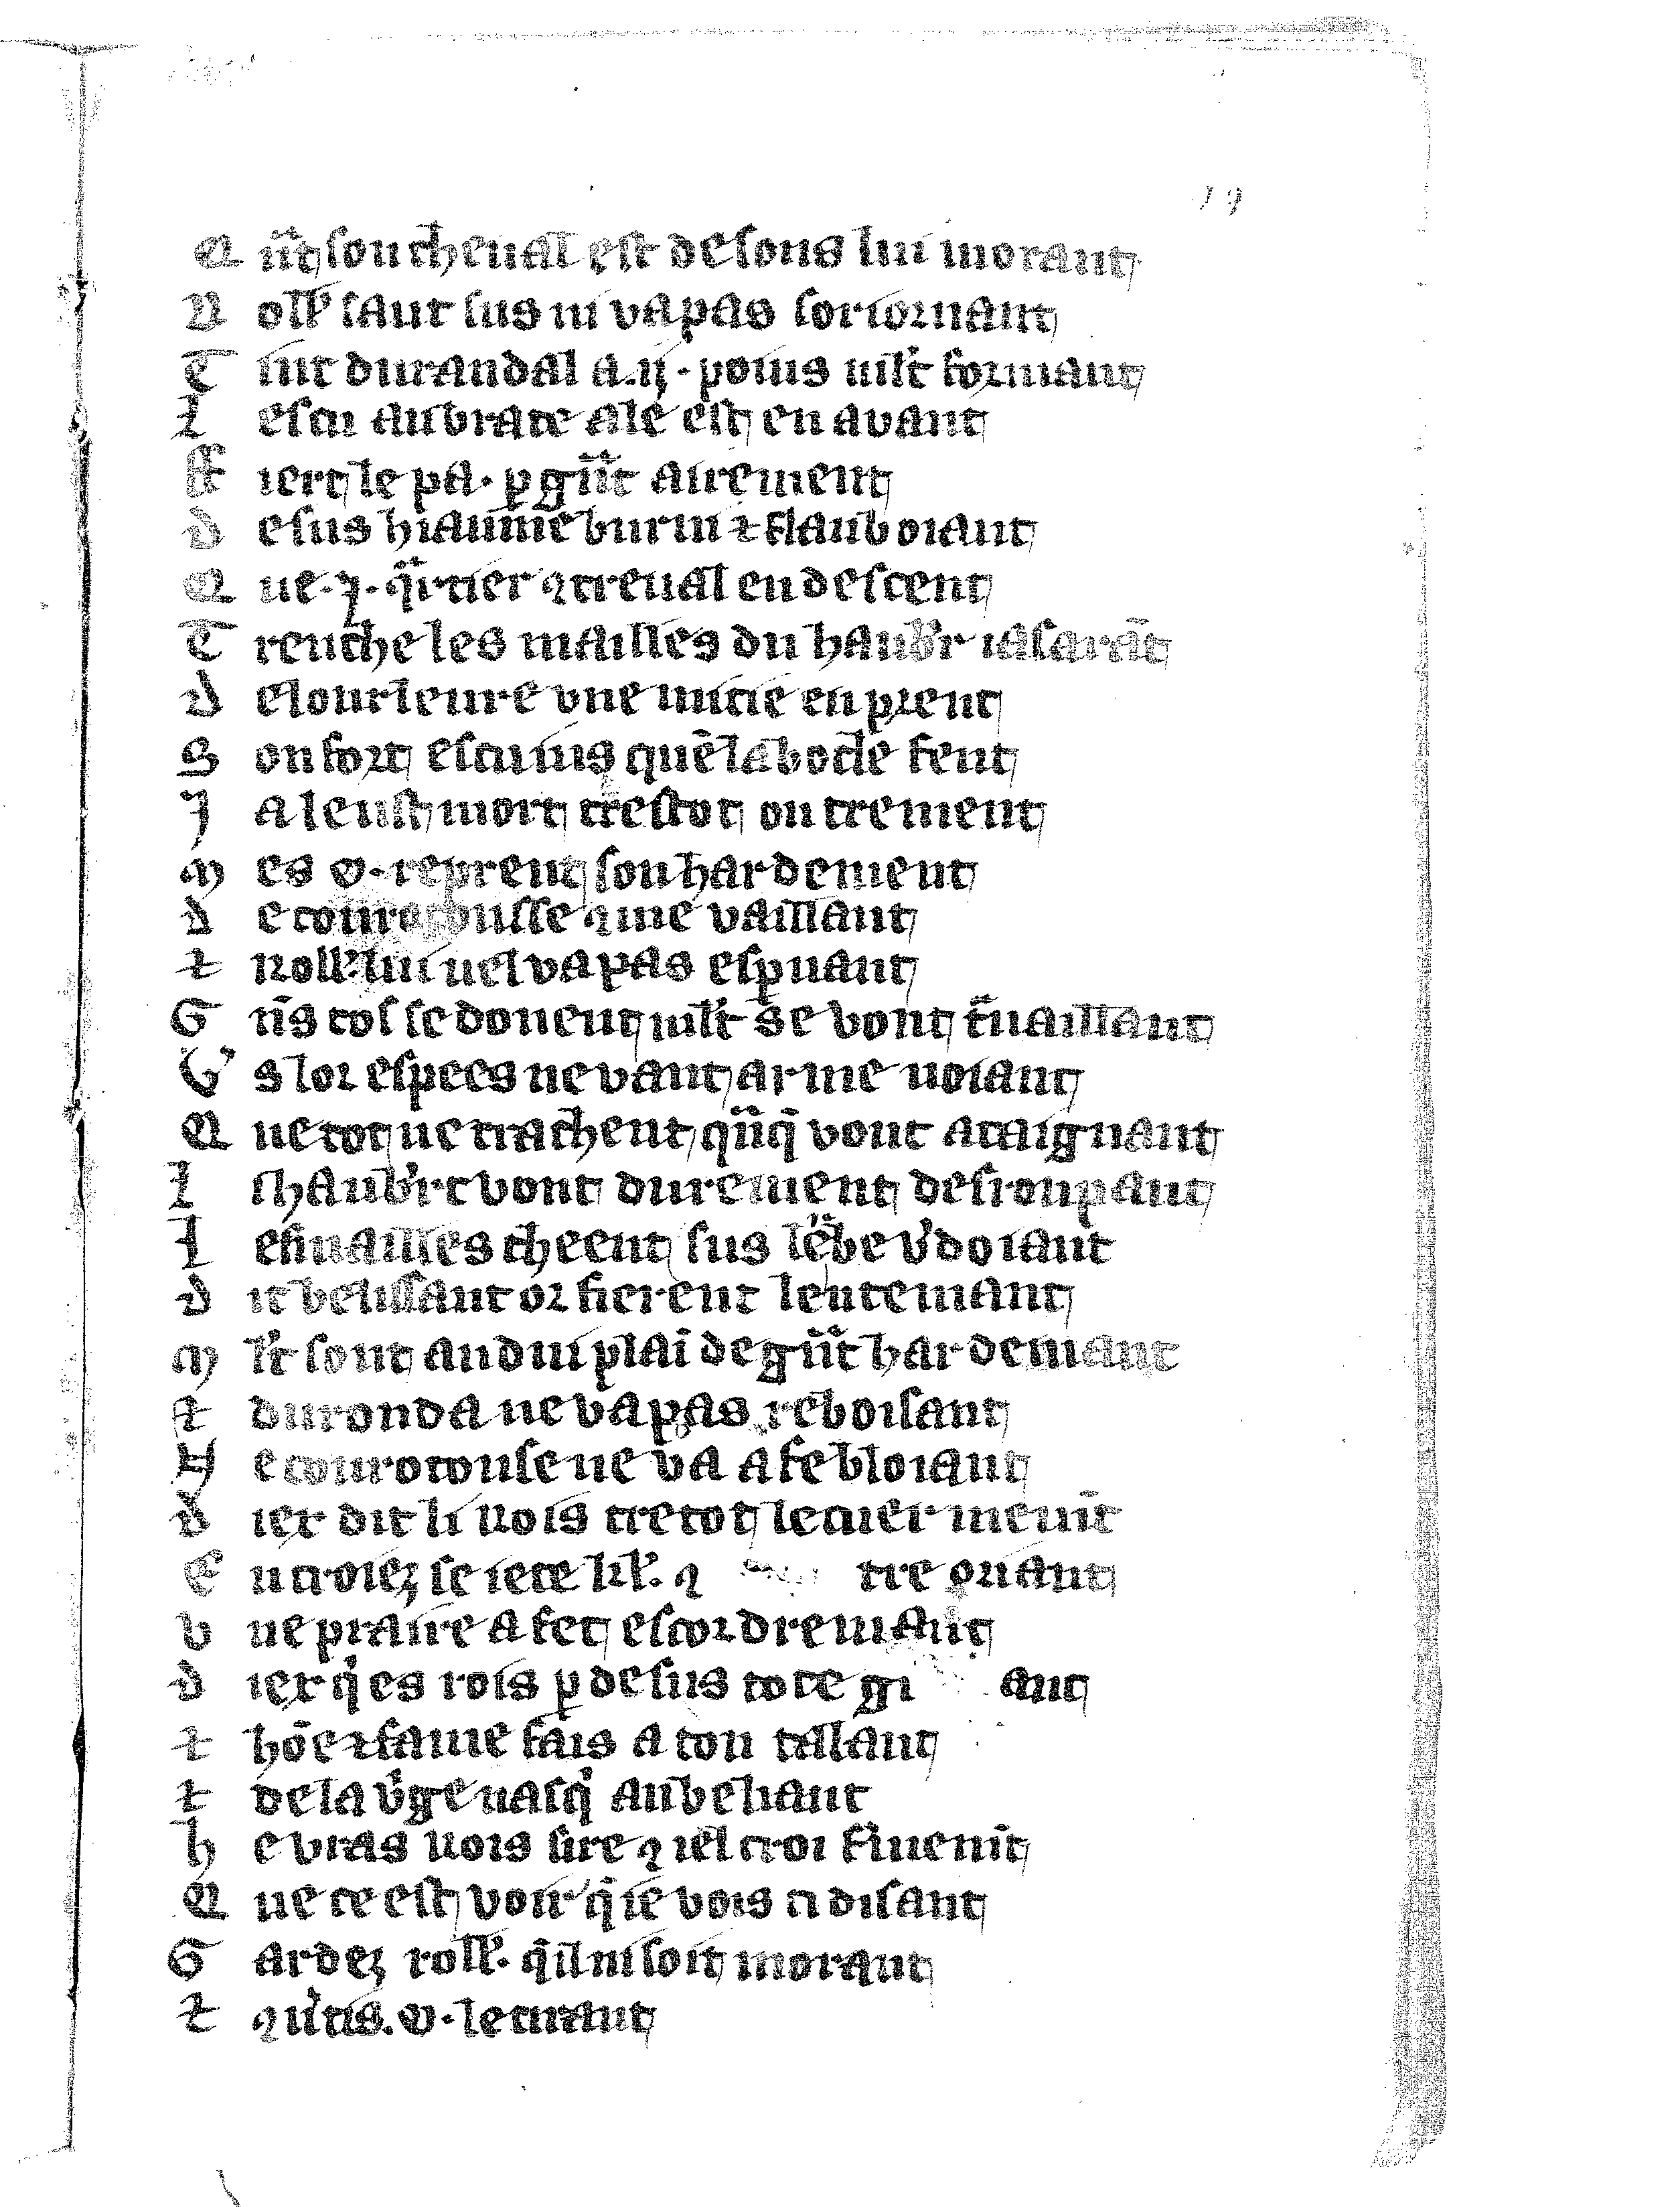 19
Q ñt son cheual est desous lui morant
R oll' saut sus ni va pas soriornant
T int durandal a .ij. poins mlt' formant
L escu anbrace ale est en avant
ff iert le pa. ꝑ gñt airement
d esus hiaume burni ⁊ flanboiant
Q ue .j. q̃rtier ꝯtreual en descent
T renche les mailles du haub'r iasarāt
d e sourleure vne mitie en prent
S on fort escu iusquē la bocle fent
J a leust mort trestot outrement
m es O. reprent son hardement
d e courecousse ꝯme vaillant
⁊ roll' lui nel va pas espnant
G ñs cos se donent mlt' se vont t̃uaillant
C' s lor espees ne vant arme uoiant
Q ue tot ne trachent q̃nq̄ vont ataignant
L s haub'rc vont durement desronpant
L es mailles cheent sus lē̃be v'doiant
d it belissant or fierent lentemant
m lt' sont andui plai de gñt hardemant
⁊ duronda ne va pas reboisant
H e courocouse ne va afebloiant
d iex dit li rois tretot le cuier menīt
E n croiez se iete kl'. ꝯ tre oriant
v ne praiire a fet escordremant
d iex q̍ es rois ꝑ desus tote gi ant
⁊ hōe ⁊ fame fais a ton talant
⁊ de la v'ge nasq̍ an beliant
h e vras rois sire ꝯ iel croi f'menīt
Q ue ce est voir q̄ ie vois ci disant
G ardez roll'. q̄l ni soit morant
⁊ ꝯu'tis. O. le tirant